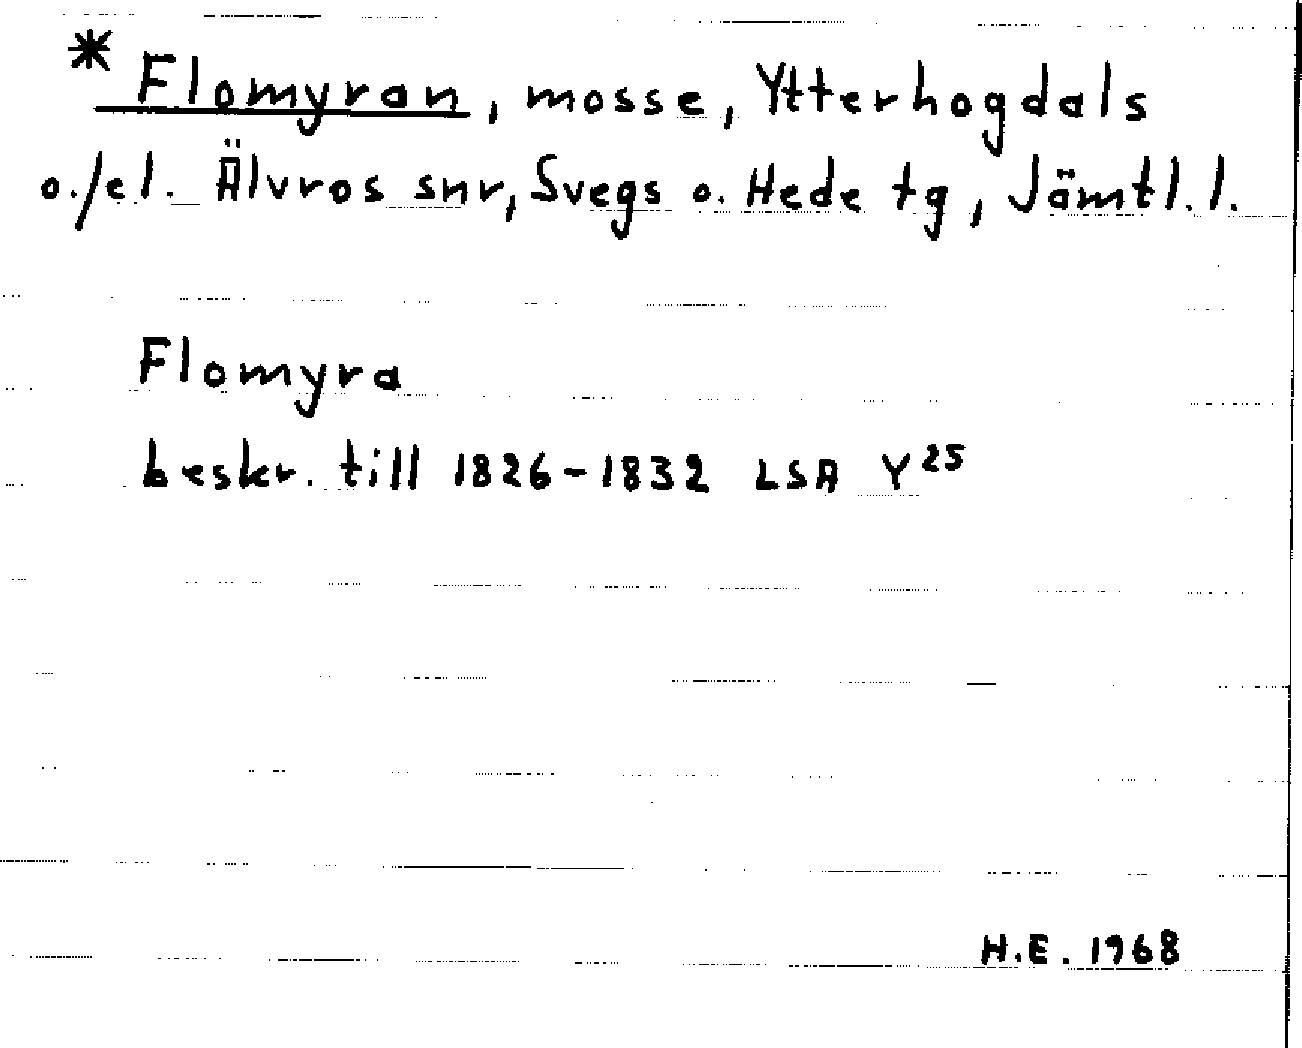 * Flomyran, mosse, Ytterhogdals
o./el. Älvros snr, Svegs o. Hede tg, Jämtl. l.
Flomyra
beskr. till 1826-1832 LSA Y²⁵
H.E. 1968